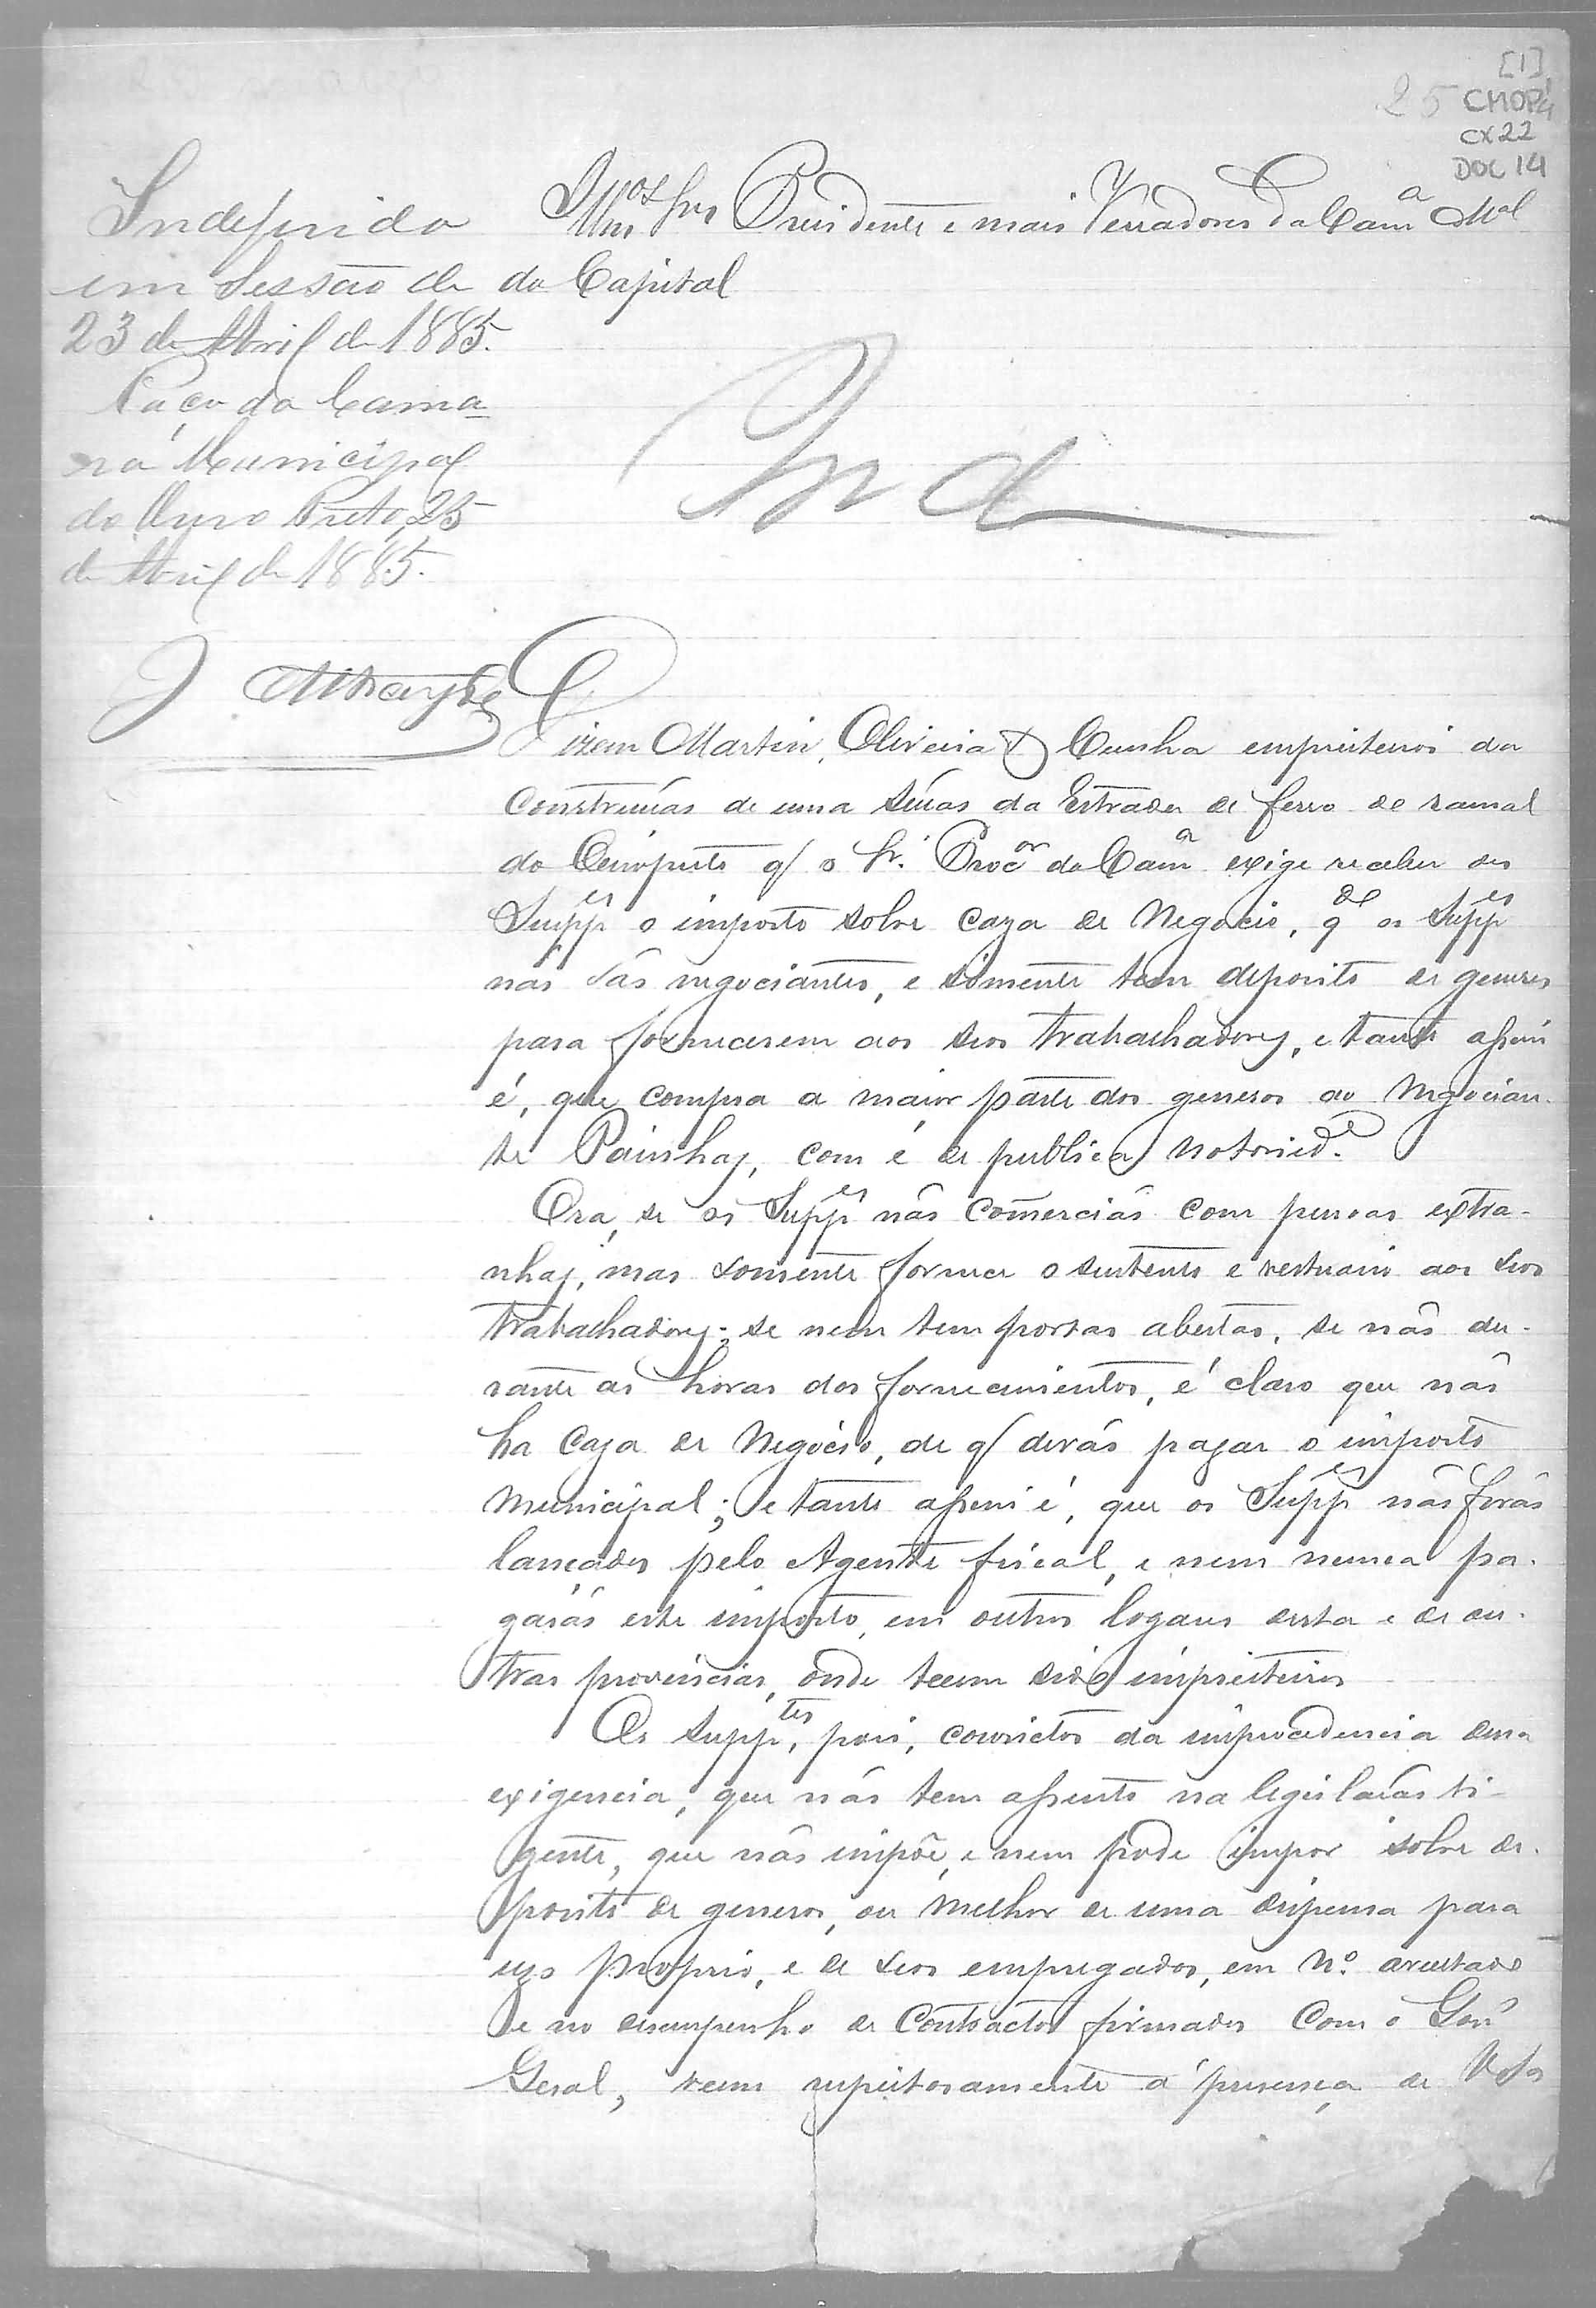 [1]
25 CMOP
CX 22
DOC 14
Indeferido
em Sessão de
23 de Abril de 1885.
Paço da Cama
ra Municipal
do Ouro Preto, 25
de Abril de 1885.
Illmos Snrs Presidente e mais Vereadores da Camª Mal
da Capital
Ind
Dizem Martin, Oliveira & Cunha empreiteiros da
construcás de uma secás da Estrada de ferro do ramal
do Ouropreto q/ o Sr. Procor da Camª exige receber dos
Suppes o imposto sobre caza de Negocio, q os Suppes
nás sás negociantes, e sómente tem deposito de generos
para fornecerem aos seos trabalhadores, e tanto assim
é, que compra a maior parte dos generos ao Negocian-
te Painhas, com é de publica notoried.e
Ora, se os Suppes nás comerciás com pessoas extra-
nhas, mas somente fornece o sustento e vestuario aos seos
trabalhadores; se nem tem portas abertas, se nás du-
rante as horas dos fornecimentos, é claro que nás
ha Caza de Negocio, de q/ devás pagar o imposto
Municipal; e tanto assim é, que os Suppes nás forás
lançados pelo Agente fiscal, e nem nunca pa-
garás este imposto, em outros logares desta e de ou-
tras provincias, onde teem sido impreiteiros
Os Supptes, pois, convictos da improcedencia dessa
exigencia, que nás tem assento na legislacás vi-
gente, que nás impõe, e nem pode impor sobre de-
posito de generos, ou melhor de uma dispensa para
uzo proprio, e de seos empregados, em nº. avultado
e no desempenho de Contractos firmados com o Gov
Geral, veem respeitosamente á presença de VSas